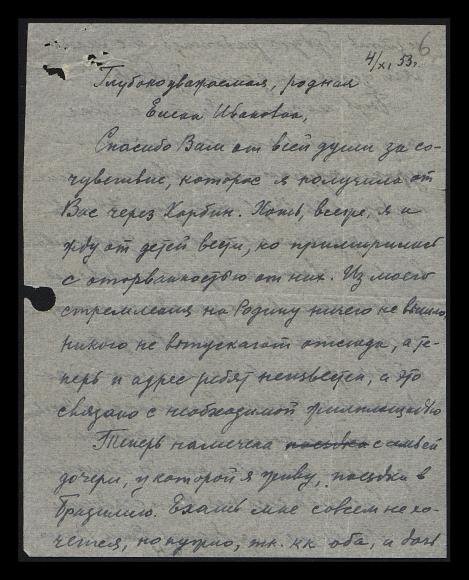 6
4/XI 53 г.
Глубокоуважаемая, родная
Елена Ивановна,
Спасибо Вам от всей души за со-
чувствие, которое я получила от
Вас через Харбин. Хоть, я и
жду от детей вести, но примирилась
с оторванностью от них. Из моего
стремления на Родину ничего не вышло,
никого не выпускают отсюда, а те-
перь и адрес ребят неизвестен, а это
связано с необходимой жилплощадью
Теперь намечена поездка с семьей
дочери, у которой я живу, поездка в
Бразилию. Ехать мне совсем не хо-
чется, но нужно, т.к. оба, и дочь